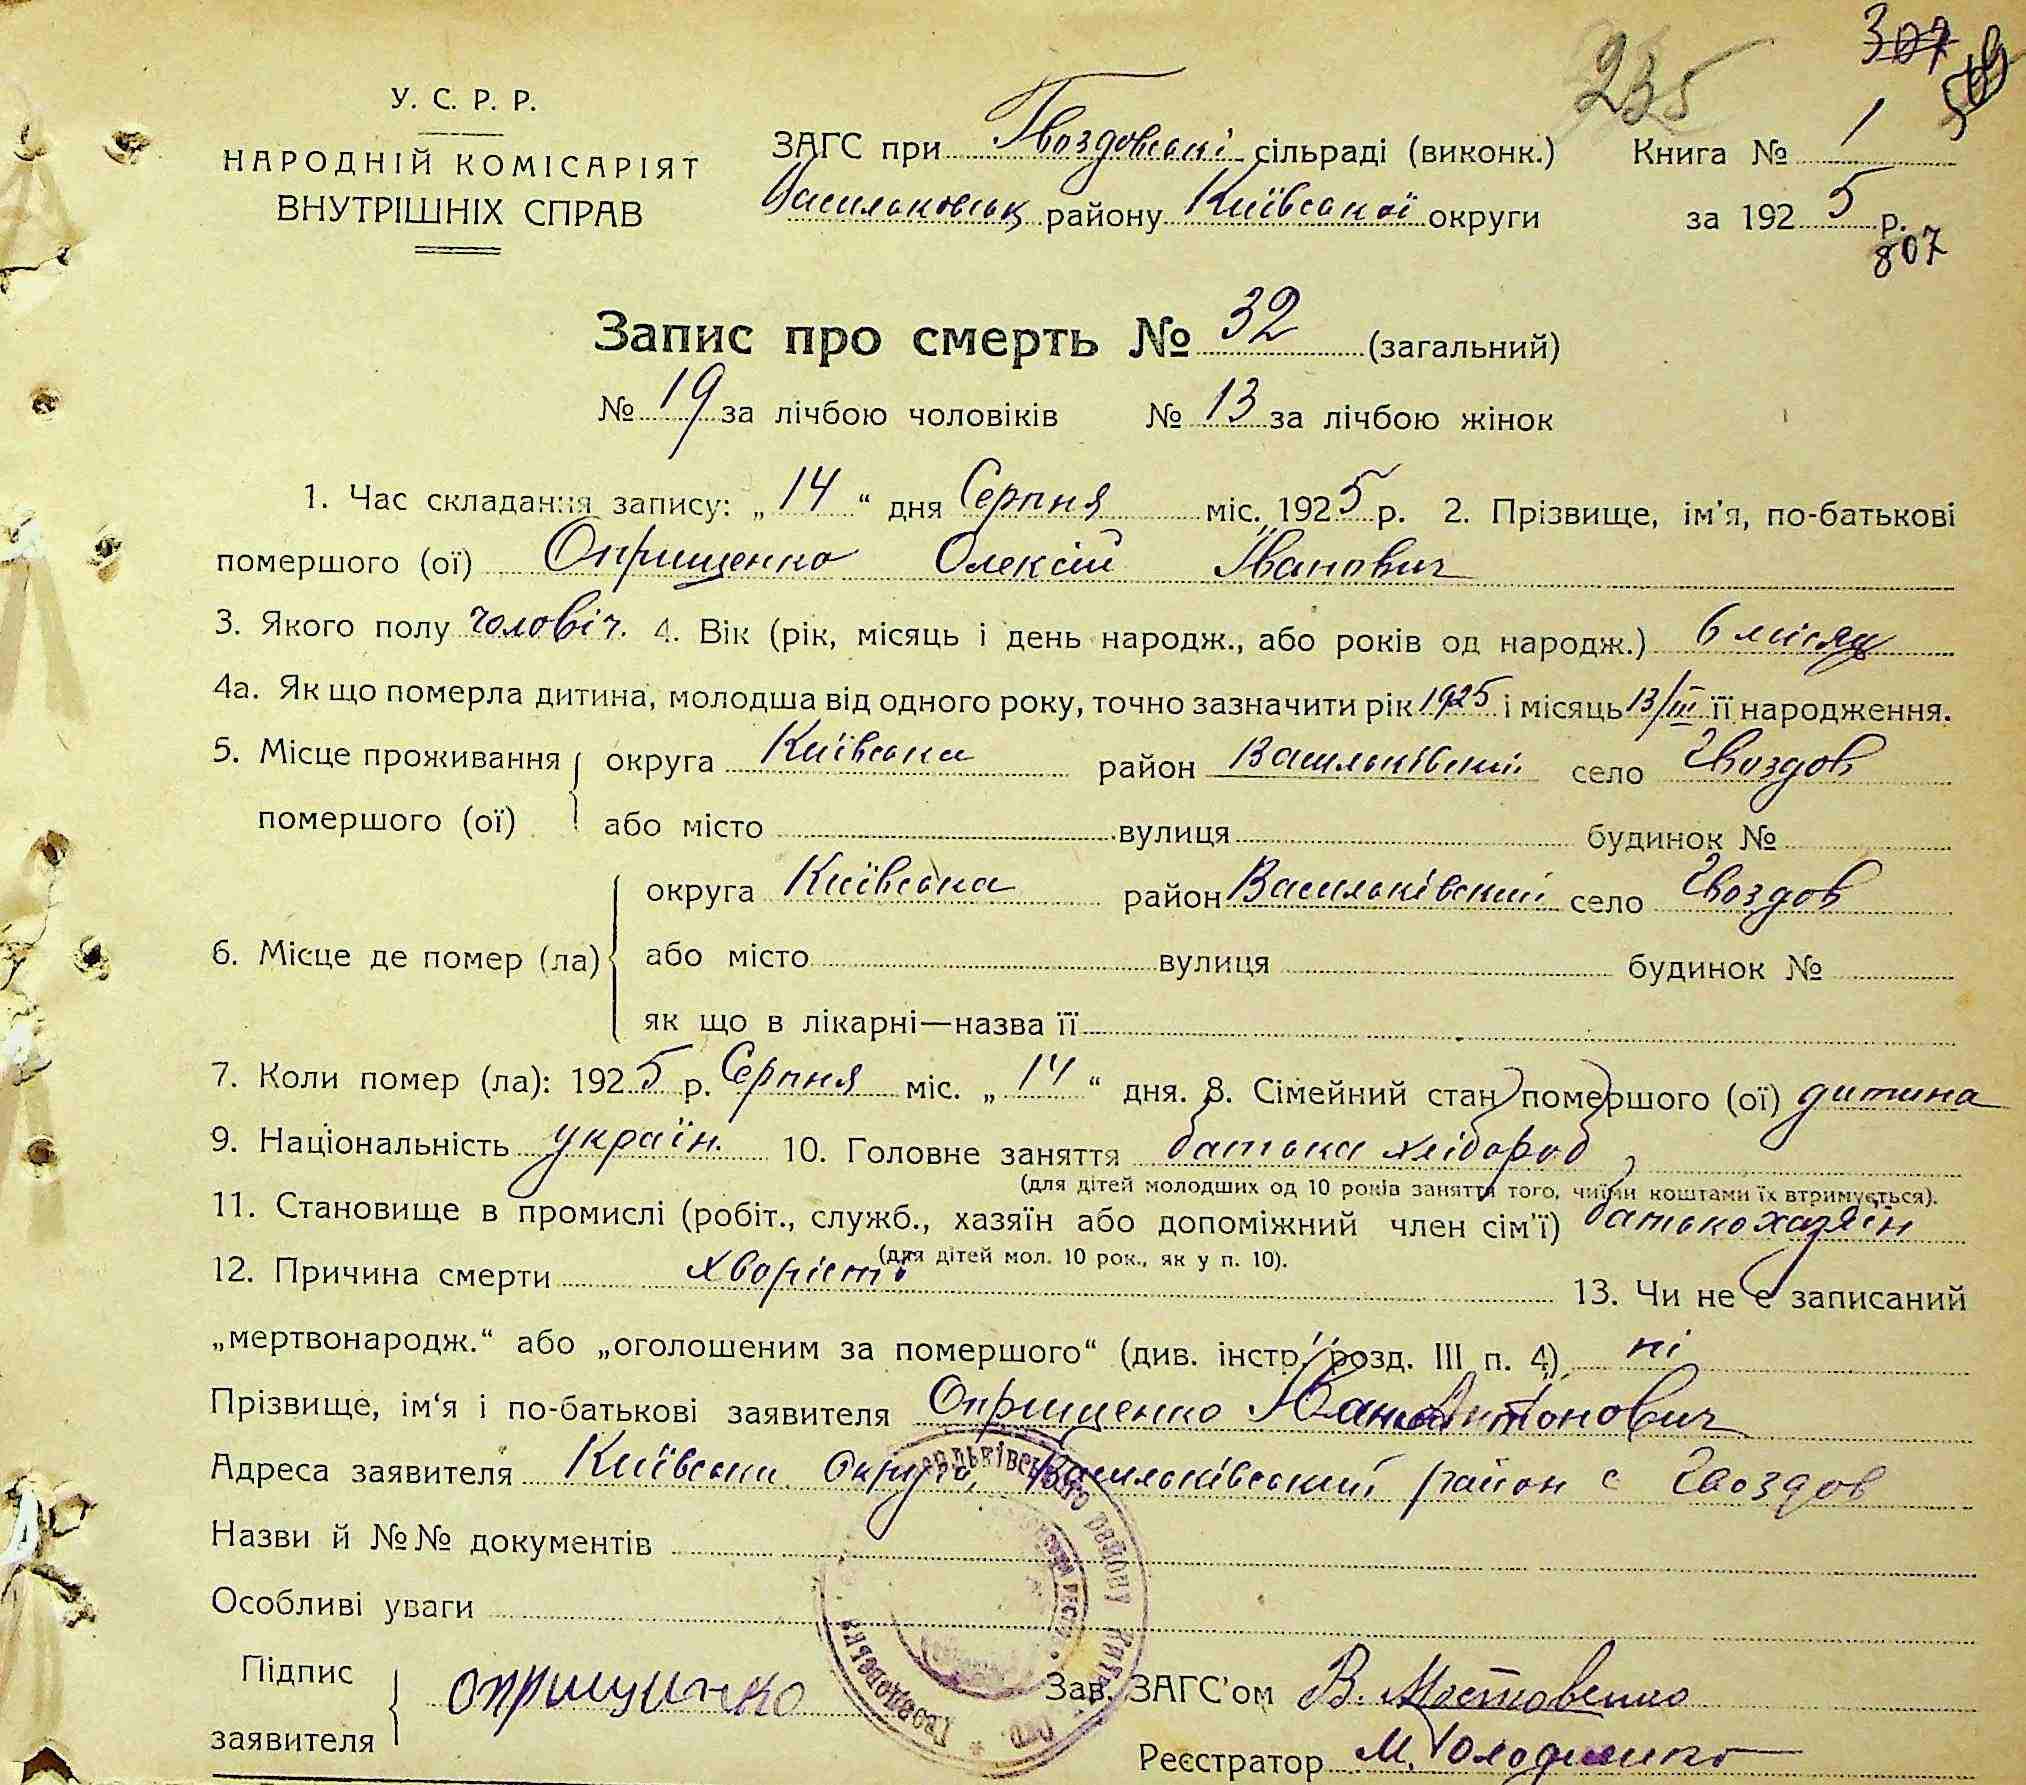 235 307
У. С. Р. Р.
НАРОДНІЙ КОМІСАРІЯТ
ВНУТРІШНІХ СПРАВ
ЗАГС при Гвоздовські сільраді (виконк.) Книга № 1
Васильковськ району Київської округи за 1925 р.
807
Запис про смерть № 32 (загальний)
№ 19 за лічбою чоловіків № 13 за лічбою жінок
1. Час складання запису: „14“ дня Серпня міс. 1925 р. 2. Прізвище, ім'я, по-батькові
помершого (ої) Оприщенко Олексій Іванович
3. Якого полу чоловіч. 4. Вік (рік, місяць і день народж., або років од народж.) 6 місяц
4а. Як що померла дитина, молодша від одного року, точно зазначити рік 1925 і місяць 13/III її народження.
5. Місце проживання округа Київська район Васильківський село Гвоздов
помершого (ої) або місто вулиця будинок №
округа Київська район Васильківский село Гвоздов
6. Місце де помер (ла) або місто вулиця будинок №
як що в лікарні—назва її
7. Коли помер (ла): 1925 р. Серпня міс. „14“ дня. 8. Сімейний стан помершого (ої) дитина
9. Національність україн. 10. Головне заняття батька хлібороб
(для дітей молодших од 10 років заняття того, чиїми коштами їх втримується).
11. Становище в промислі (робіт., служб., хазяїн або допоміжний член сім'ї) батько хазяїн
(для дітей мол. 10 рок., як у п. 10).
12. Причина смерти хворість 13. Чи не є записаний
„мертвонародж.“ або „оголошеним за помершого“ (див. інстр. розд. III п. 4) ні
Прізвище, ім'я і по-батькові заявителя Оприщенко Іван Антонович
Адреса заявителя Київська округа, Васильківський район с Гвоздов
Назви й №№ документів
Особливі уваги
Підпис заявителя оприщинко
Зав. ЗАГС'ом В. Мостовенко
Реєстратор М.